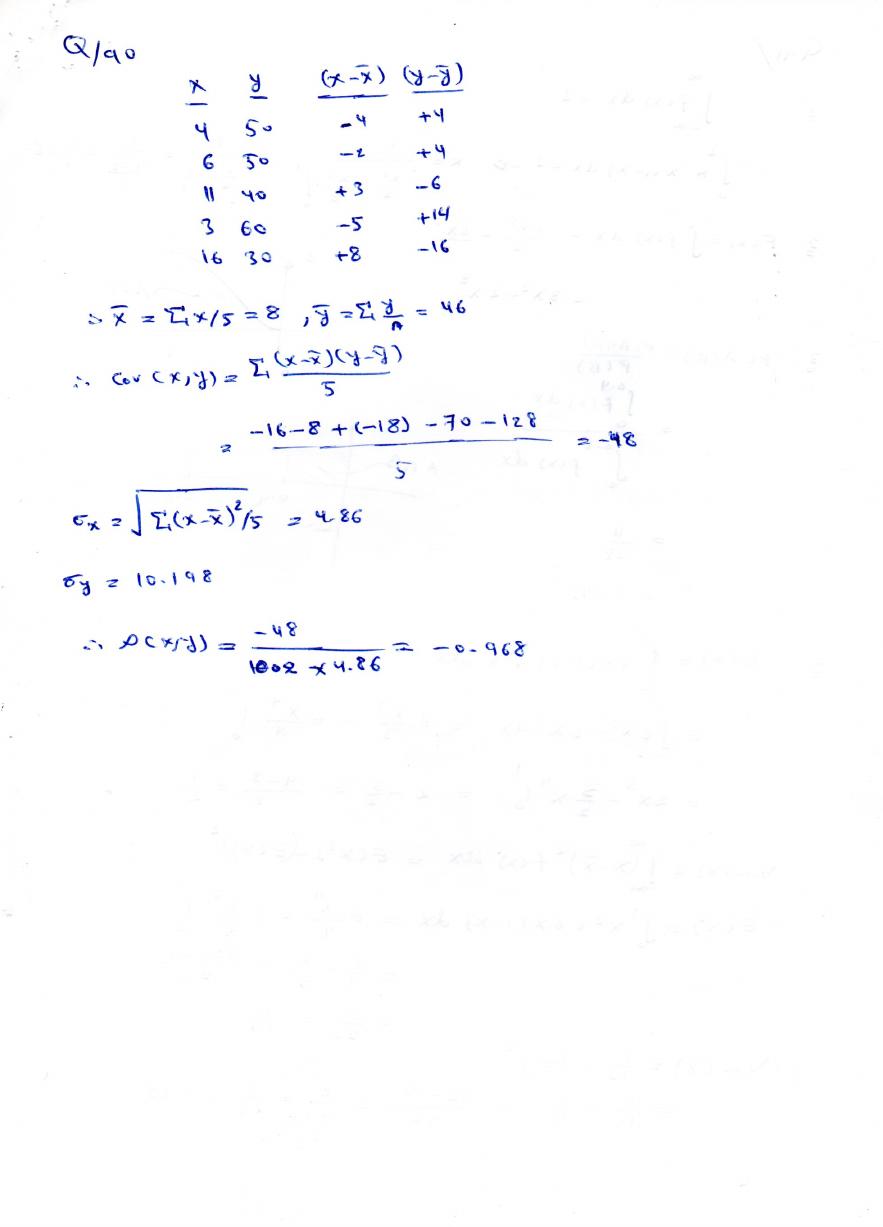 Q/90
x y (x-x̄) (y-ȳ)
4 50 -4 +4
6 50 -2 +4
11 40 +3 -6
3 60 -5 +14
16 30 +8 -16
x̄ = Σx/5 = 8 , ȳ = Σ y/n = 46
∴ Cov (x,y) = Σ (x-x̄)(y-ȳ) / 5
= -16-8+(-18) -70 -128 / 5 = -48
σx = √Σ(x-x̄)²/5 = 4.86
σy = 10.198
∴ ρ(x,y) = -48 / × 4.86 = -0.968